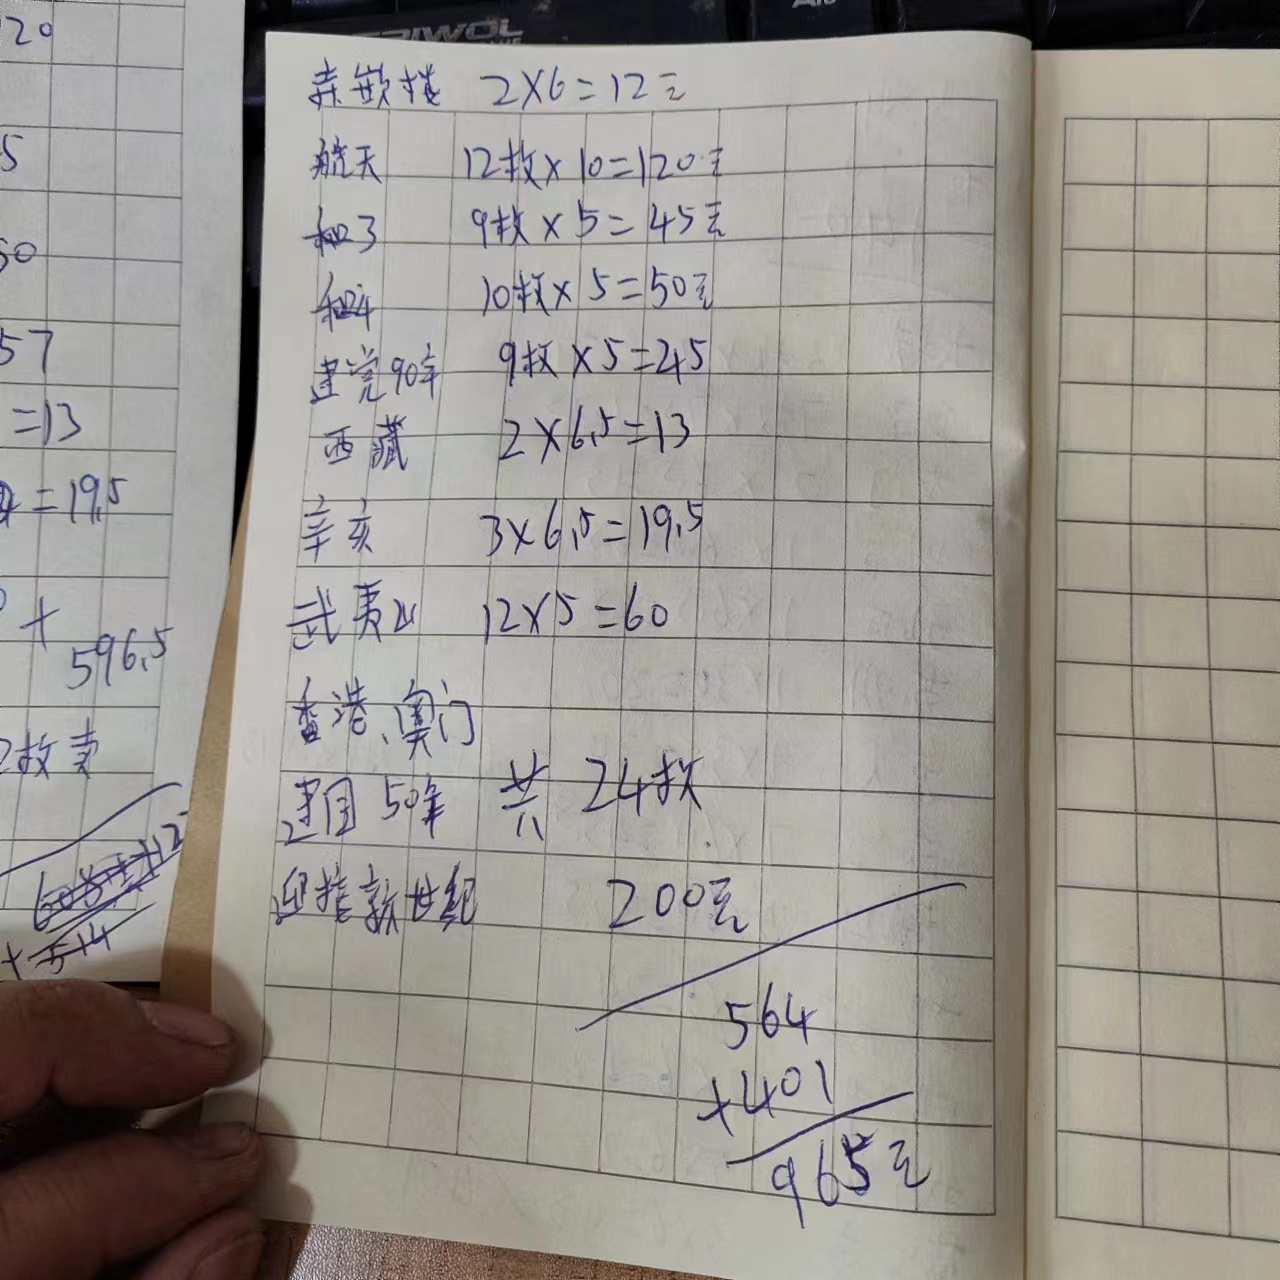 20
5
50
57
=13
=19.5
+
596.5
2枚卖
2×6=12元
航天 12枚×10=120元
和3 9枚×5=45元
和4 10枚×5=50元
建党90年 9枚×5=45
西藏 2×6.5=13
辛亥 3×6.5=19.5
武夷山 12×5=60
香港、澳门
建国50年 共 24枚
迎接新世纪 200元
564
+401
965元